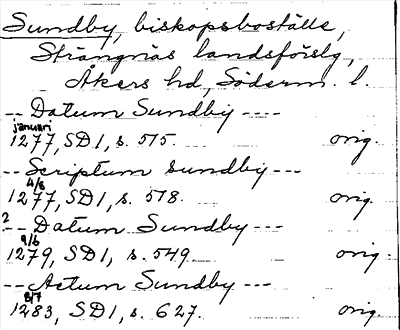 Sundby, biskopsboställe,
Strängnäs landsförslg,
Åkers hd, Söderm. l.
-- Datum Sundby ----
januari
1277, SD1, s. 575. orig.
-- Scriptum sundby ---
4/8
1277, SD1, s. 578. orig.
? -- Datum Sundby ---
9/6
1279, SD1, s. 549. orig.
-- Actum Sundby ---
8/7
1283, SD1, s. 627. orig.